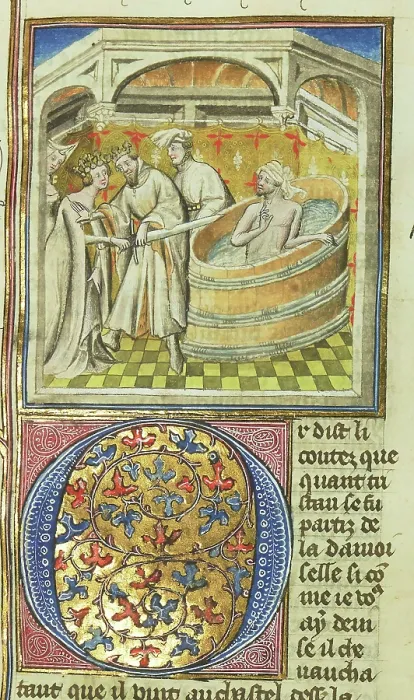 r dist li
contez que
quant tri
stan se fu
partiz de
la damoi
selle si cō
me ie voꝰ
ay deui
se il che
uaucha
tant que il vint au chastel